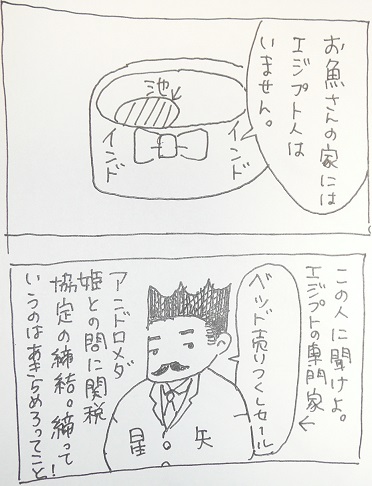 お魚さんの家には
エジプト人は
いません。
池
インド
インド
この人に聞けよ。
エジプトの専門家
ベッド売りつくしセール
アンドロメダ
姫との間に関税
協定の締結。締って
いうのはあきらめろってこと!
星矢